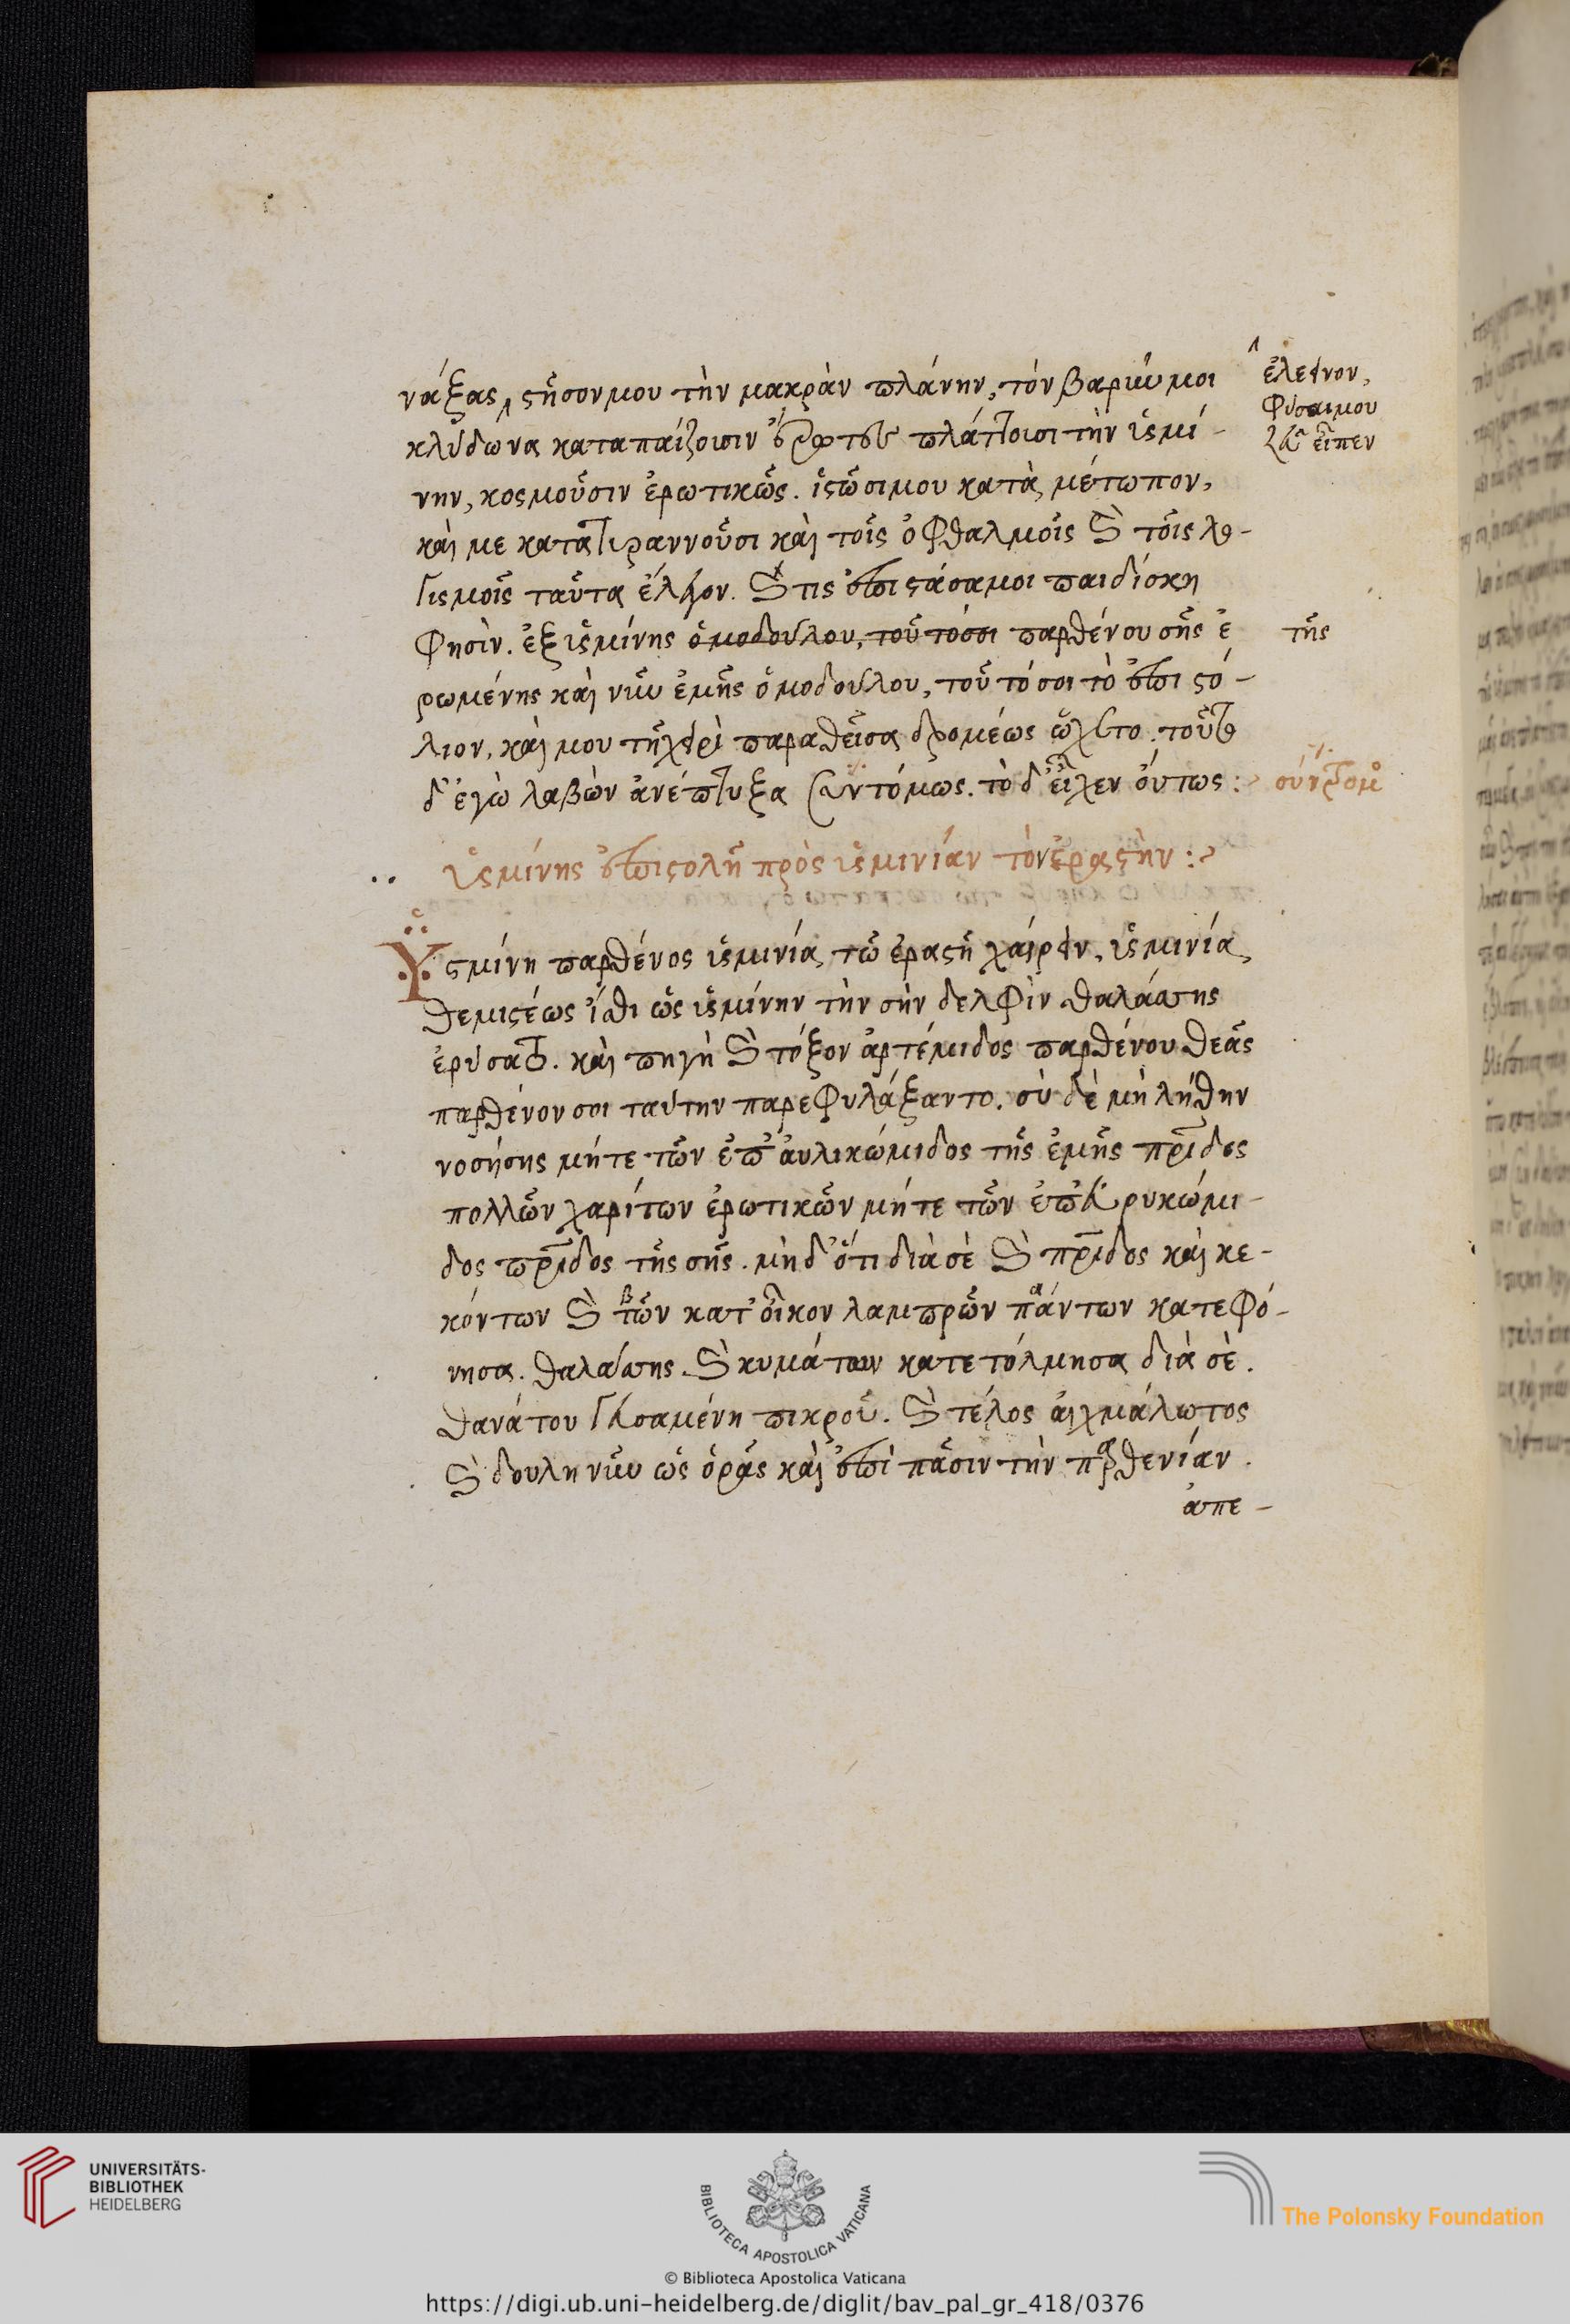 νάξας, στῆσον μου τὴν μακρὰν πλάνην, τὸν βαρύν μοι
ἐλεεινον,
φύσαιμου
εἶπεν
κλύδωνα καταπαίζουσιν ἔρωτες πλάττουσι τὴν ὑσμί-
νην, κοσμοῦσιν ἐρωτικῶς. ἱστῶσι μου κατὰ μέτωπον,
καί με κατατυραννοῦσι καὶ τοῖς ὀφθαλμοῖς καὶ τοῖς λο-
γισμοῖς ταῦτα ἔλεγον. καί τις ἐπιστάσα μοι παιδίσκη
φησίν. ἐξ ὑσμίνης ὁμοδούλου, τοῦτό σοι παρθένου σῆς ἐ
τῆς
ρωμένης καὶ νῦν ἐμῆς ὁμοδούλου, τοῦτό σοι τὸ ἐπιστό-
λιον, καί μου τῆ χειρὶ παραθεῖσα δρομέως ὤχετο. τοῦτο
δ' ἐγὼ λαβὼν ἀνέπτυξα συντόμως. τὸ δ' εἶχεν οὕτως :
σύντομ
ὑσμίνης ἐπιστολὴ πρὸς ὑσμινίαν τὸν ἐραστὴν :
Ὑσμίνη παρθένος ὑσμινία τῶ ἐραστῆ χαίρειν, ὑσμινία
θεμιστέως ἴσθι ὡς ὑσμίνην τὴν σὴν δελφὶν θαλάσσης
ἐρύσατο. καὶ πηγὴ καὶ τόξον ἀρτέμιδος παρθένου θεᾶς
παρθένον σοι ταύτην παρεφυλάξαντο. σὺ δὲ μὴ λήθην
νοσήσης μήτε τῶν ἐπ' ἀυλικώμιδος τῆς ἐμῆς πρίδος
πολλῶν χαρίτων ἐρωτικῶν μήτε τῶν ἐπ' ἐυρυκώμι-
δος πρίδος τῆς σῆς. μὴ δ' ὅτι διὰ σὲ καὶ πρίδος καὶ κε-
κόντων καὶ τῶν κατ' οἶκον λαμπρῶν πάντων κατεφό-
νησα. θαλάσσης. καὶ κυμάτων κατετόλμησα διὰ σὲ.
θανάτου γευσαμένη πικροῦ. καὶ τέλος αἰχμάλωτος
καὶ δουλη νῦν ὡς ὁρᾶς καὶ ἐπὶ πᾶσιν τὴν παρθενίαν.
ἀπε-
UNIVERSITÄTS-
BIBLIOTHEK
HEIDELBERG
BIBLIOTECA APOSTOLICA VATICANA
The Polonsky Foundation
© Biblioteca Apostolica Vaticana
https://digi.ub.uni-heidelberg.de/diglit/bav_pal_gr_418/0376